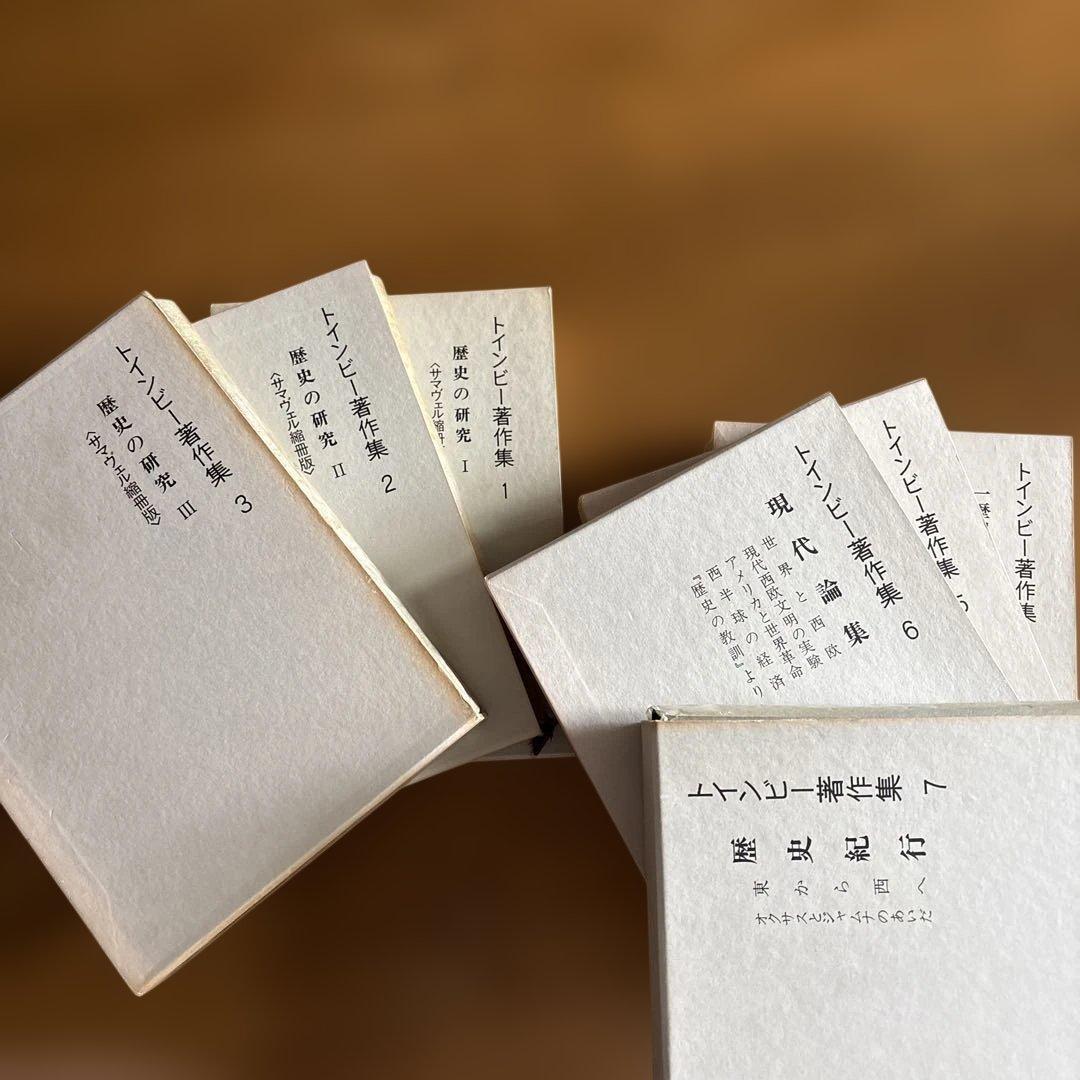 トインビー著作集 3
歴史の研究 III
〈サマヴェル縮冊版〉
トインビー著作集 2
歴史の研究 II
〈サマヴェル縮冊版〉
トインビー著作集 1
歴史の研究 I
〈サマヴェル縮冊
トインビー著作集 6
現代論集
世界と西欧
現代西欧文明の実験
アメリカと世界革命
西半球の経済
『歴史の教訓』より
トインビー著作集 5
トインビー著作集
一歴
トインビー著作集 7
歴史紀行
東から西へ
オクサスとジャムナのあいだ